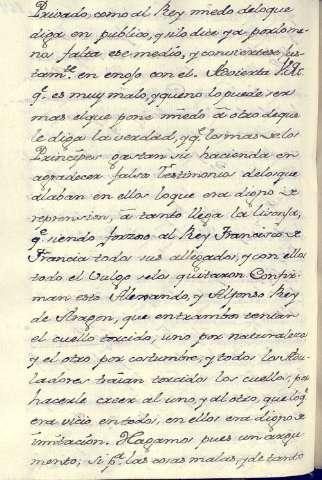 Privado, como al Rey miedo delo que
diga en publico, y si lo dice ya por lo me-
nos falta ese medio, y convierte se jus-
tam.te en enojo con el. Advierta V. M.
q.e es muy malo, y que no lo puede ser
mas el que pone miedo à otro de que
le diga la verdad, y q.e los mas de los
Principes gastan su hacienda en
agradecer falsos Testimonios de los que
alaban en ellos lo que era digno de
reprension, à tanto llega la lisonja,
q.e siendo forzoso al Rey Francisco de
Francia todos sus allegados, y con ellos
todo el Vulgo se los quitaron. Confir-
man esto Alexandro, y Alfonso Rey
de Aragon, que entrambos tenian
el cuello torcido, uno por naturaleza
y el otro por costumbre, y todos los Adu-
ladores traian torcidos los cuellos, por
hacerle creer al uno, y al otro, que lo q.e
era vicio en todos, en ellos era digno de
imitación. Hagamos pues un argu-
mento; si p.r las cosas malas, y de tanto